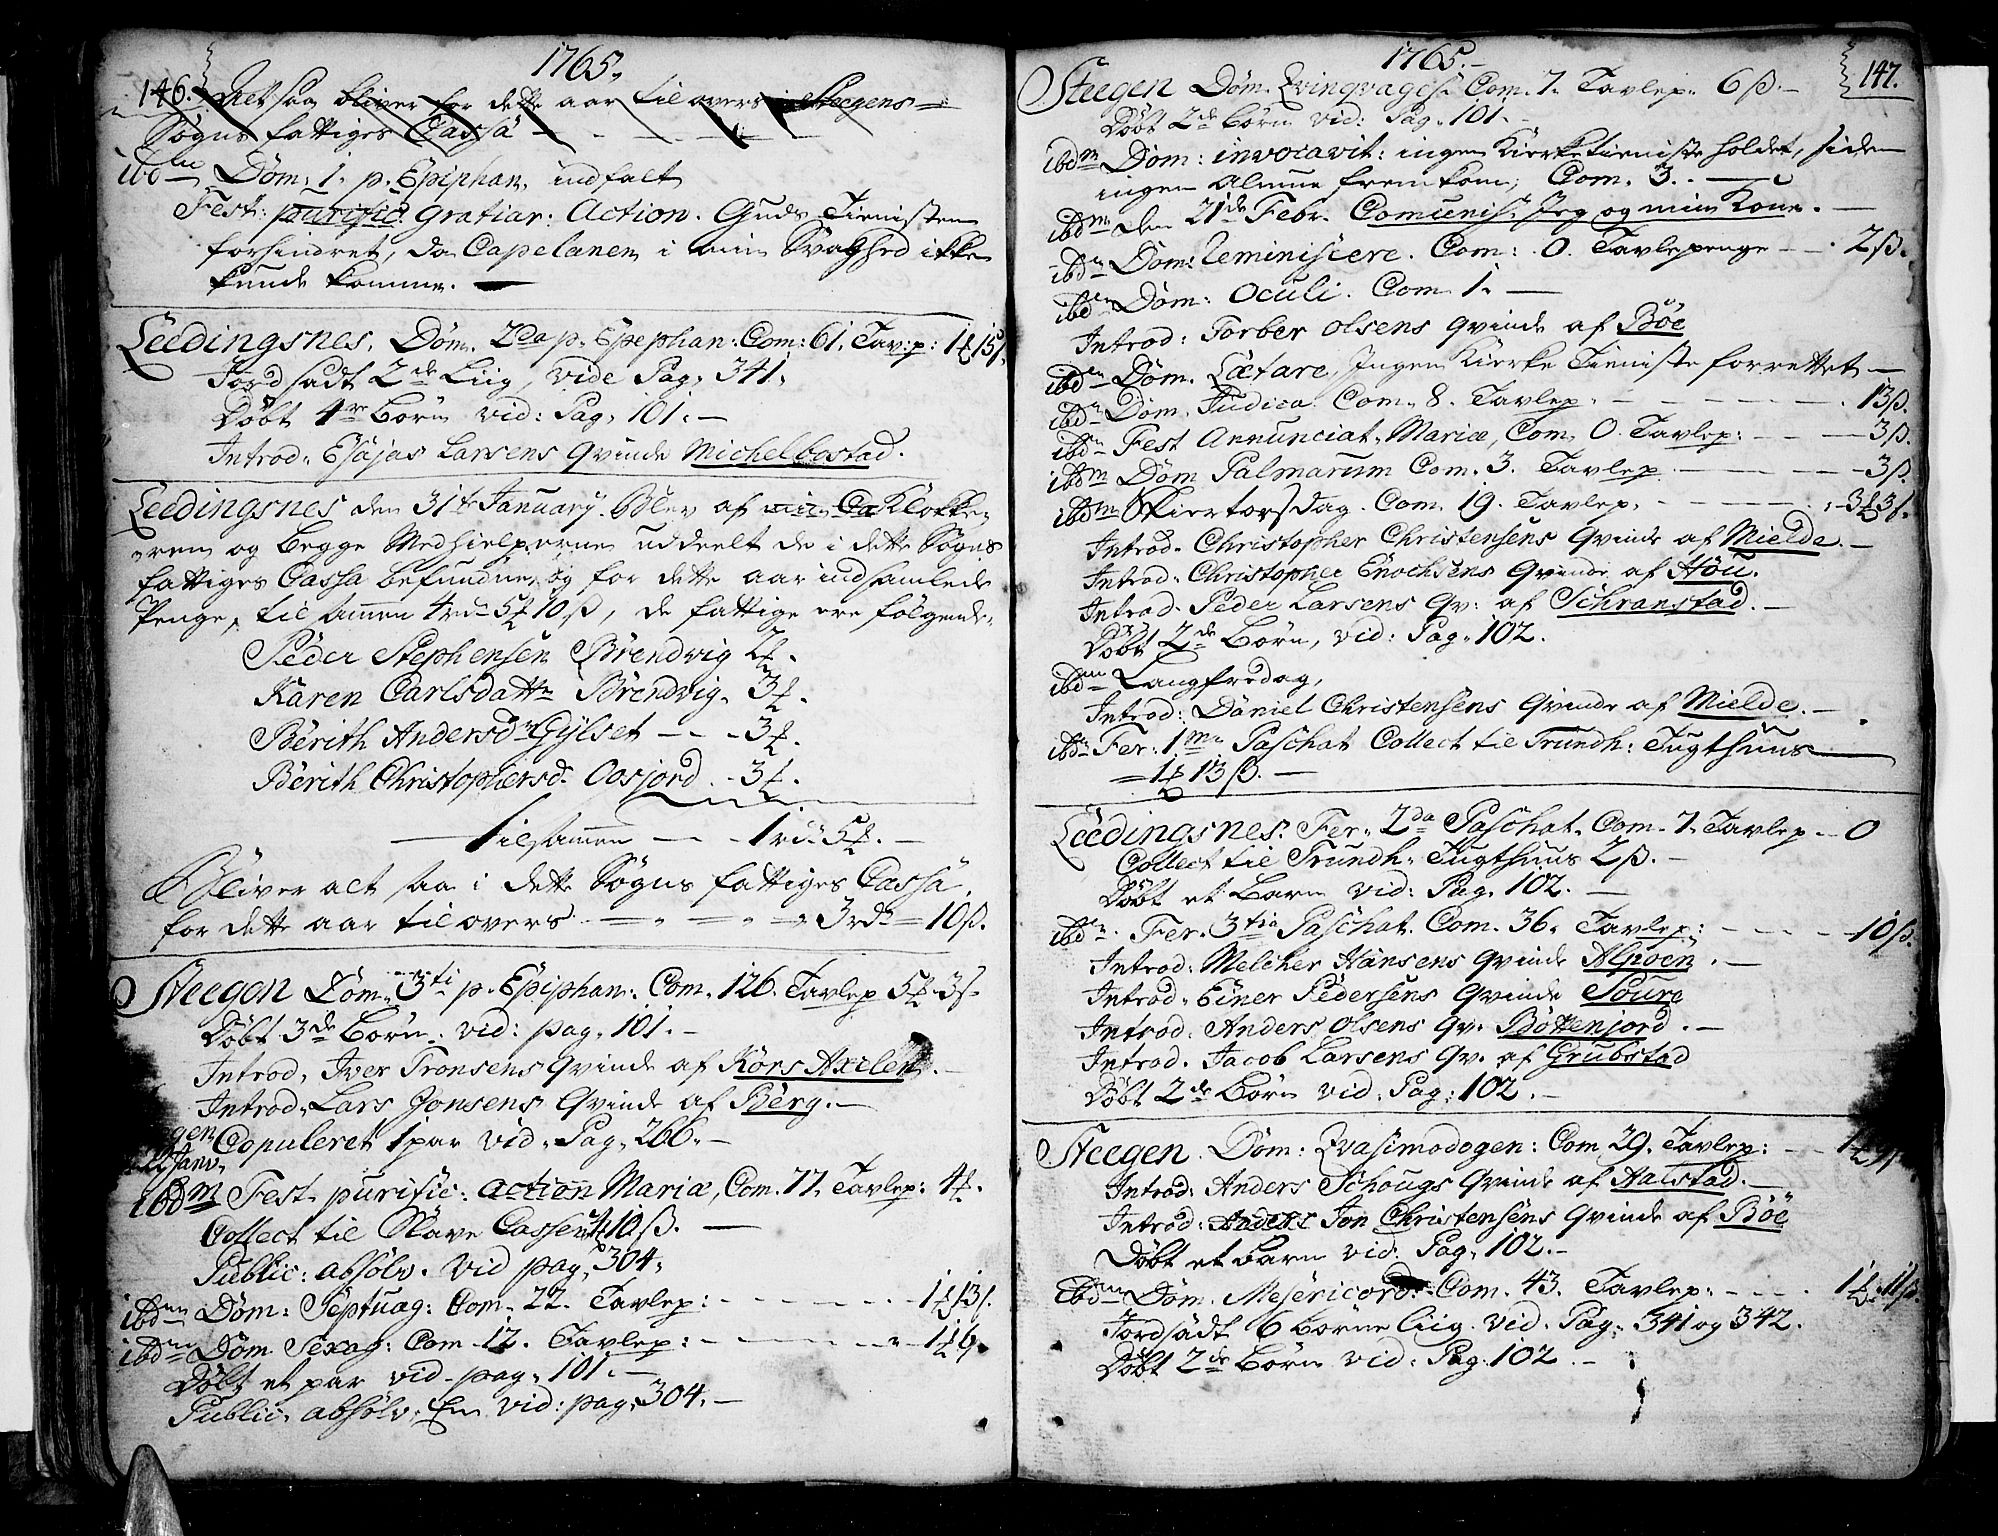 1765.
146. Alt saa bliver for dette aar til overs i Steegens
Sogns fattiges Cassa
ibdm Dom: 1. p. Epiphan. indfalt
Fest: purific: gratiar: Action. Guds Tienisten
forhindret, da Capelanen i min Svaghed ikke
kunde komme.
Leedingsnes. Dom. 2da p. Epephan: Com: 61. Tav:p:
Jordsadt 2de Liig, vide Pag. 341.
Döbt 4re Börn vid: Pag. 101.
Introd. Esajas Larsens Qvinde Michelbostad.
Leedingsnes den 31te January. Blev af min Ca Klokke-
ren og begge Medhielperne uddeelt de i dette Sogns
fattiges Cassa befundne, og for dette aar indsamlede
Penge, til samen 4 rd. 5 10 ß, de fattige ere fölgende.
Peder Stephensen Brendvig
Karen Carlsdattr Brendvig. 3
Berith Andersdr Gylset - - 3
Berith Christophersd. Oosjord. - 3
Tilsamen - - 1 rd. 5
Bliver alt saa i dette Sogns fattiges Cassa,
for dette aar til overs - - 3 rd. - 10 ß.
Steegen Dom. 3ti p. Epiphan: Com. 126. Tavlep 5 3 s
Döbt 3de Börn. vid: pag. 101.
Introd. Iver Tronsens Qvinde af Kors Axelen.
Introd. Lars Jonsens Qvinde af Berg.
Copuleret 1 par vid. Pag. 266.
Janv.
ibdm Fest. purific: action Mariæ, Com. 77. Tavlep: 4
Collect til Slave Cassen 10 ß.
Public: absolv. vid pag. 304.
ibdm Dom: Septuag: Com. 22. Tavlep: - - - 1 13 s.
ibdm Dom Sexag: Com 12. Tavlep: - - - 1 9.
Döbt et par vid. pag. 101.
Public. absolv. En vid: pag. 304.
1765.
147.
Steegen Dom. Qvinqvages: Com. 7. Tavlep. 6 ß.
Döbt 2de Börn vid: Pag. 101.
ibdm Dom: invocavit: ingen Kierketieniste holdet, siden
ingen Almue fremkom; Com. 3.
ibdm den 21de Febr. Comunic: Jeg og min Kone.
ibdm Dom: Reminiscere. Com: 0. Tavlepenge - - 2 ß.
ibdm Dom: Oculi. Com. 1.
Introd: Torber Olsens Qvinde af Böe
ibdm Dom. Lætare, Ingen Kierke Tieniste forrettet
ibdm Dom. Judica. Com. 8. Tavlep. - - - 13 ß.
ibdm Fest Annunciat. Mariæ, Com. 0. Tavlep: - - 3 ß.
ibdm Dom Palmarum Com. 3. Tavlep - - - 3 ß
ibdm Skiertorsdag. Com. 19. Tavlep. - - - 3 3 s.
Introd. Christopher Christensens Qvinde af Mielde.
Introd. Christopher Enochsens Qvinde af Höu.
Introd. Peder Larsens Qv: af Schranstad.
Döbt 2de Börn, vid: Pag. 102.
ibdm Langfredag,
Introd: Daniel Christensens Qvinde af Mielde.
ibdm Fer: 1ma Paschat Collect til Trundh: Tugthuus
1 13 ß.
Leedingsnes. Fer. 2da Paschat. Com. 7. Tavlep - 0
Collect til Trundh. Tugthuus 2 ß.
Döbt et Barn vid: Pag. 102.
ibdm. Fer. 3tia Paschat. Com. 36. Tavlep: - - - 10 ß.
Introd: Melcher Hansens Qvinde
Introd. Einer Pedersens Qvinde Poure
Introd. Anders Olsens Qv. Bottenjord.
Introd. Jacob Larsens Qv. af Grubstad
Döbt 2de Börn vid. Pag: 102.
Steegen. Dom: Qvasimodogen: Com 29. Tavlep: - -
Introd: Anders Schougs Qvinde af Haalstad.
Introd: Anders Jon Christensens Qvinde af Böe
Döbt et barn vid: Pag. 102.
ibdm Dom. Misericord: Com. 43. Tavlep: - - - 1 11 ß.
Jordsadt 6 Börne Liig. vid. Pag. 341 og 342.
Döbt 2de Börn vid: Pag. 102.